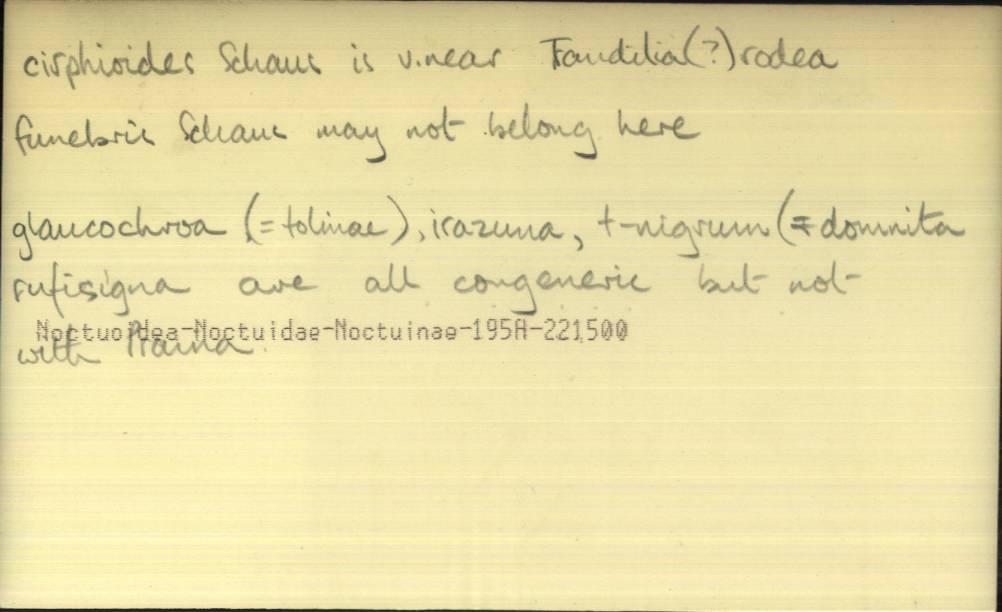 cirphioides Schaus is v.near Faudilia(?)rodea
funebris Schaus may not belong here
glaucochroa (=tolinae), irazuna, t-nigrum (=domnita
rufisigna are all congeneric but not
Noctuoidea-Noctuidae-Noctuinae-195A-221500
with Praina